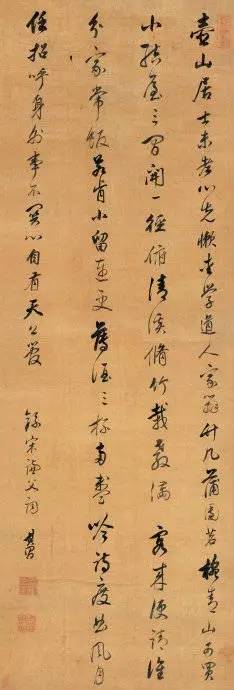 壺山居士未老心先懶愛學道人家辦竹几蒲團茗椀青山可買
小結屋三間開一徑俯清溪脩竹栽教滿 客來便請隨
分家常飯若肯小留連更薄酒三杯兩盞吟詩度曲風月
任招呼身外事不關心自有天公管 錄宋謙父詞 其昌